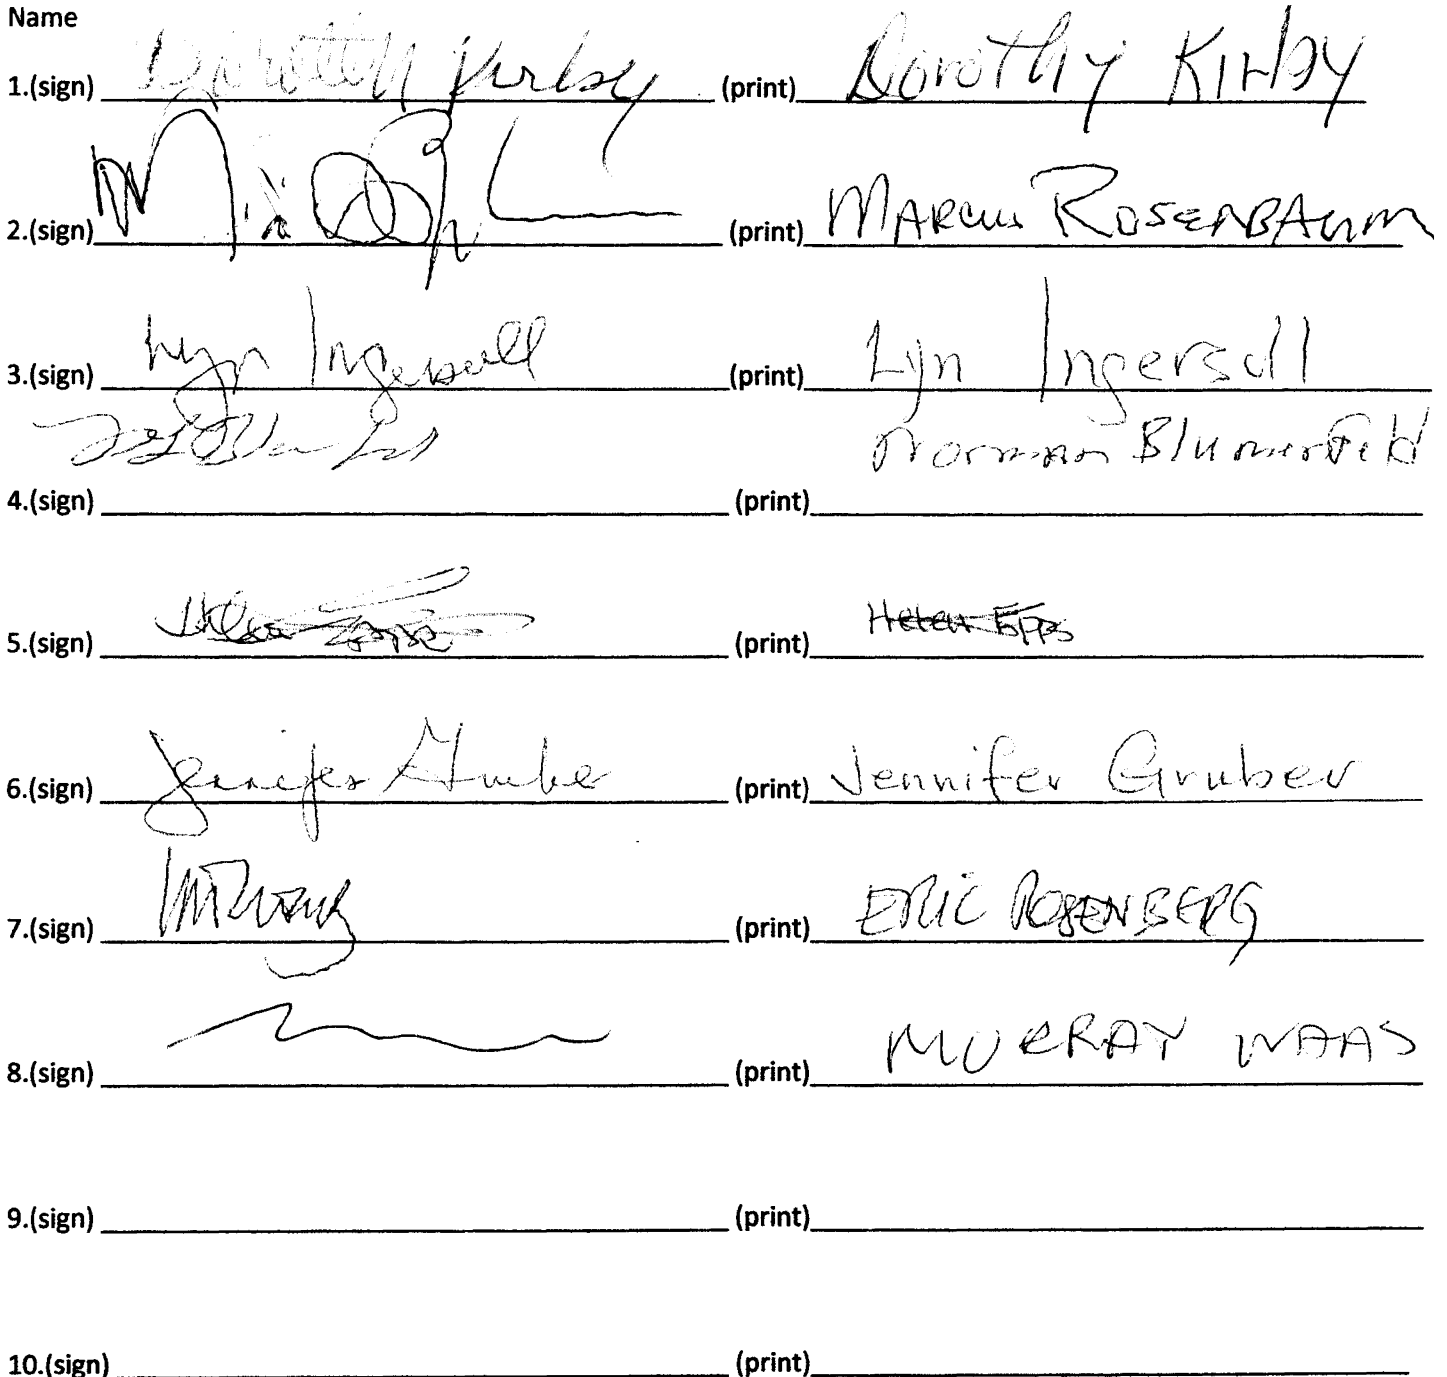 Name
1.(sign) Dorothy Kirby (print) Dorothy Kirby
2.(sign) (print) MARCUS ROSENBAUM
3.(sign) Lyn Ingersoll (print) Lyn Ingersoll
Norman Blumenfeld
4.(sign) (print)
5.(sign) Helen Epps (print) Helen Epps
6.(sign) Jennifer Gruber (print) Jennifer Gruber
7.(sign) (print) ERIC ROSENBERG
8.(sign) (print) MURRAY WAAS
9.(sign) (print)
10.(sign) (print)